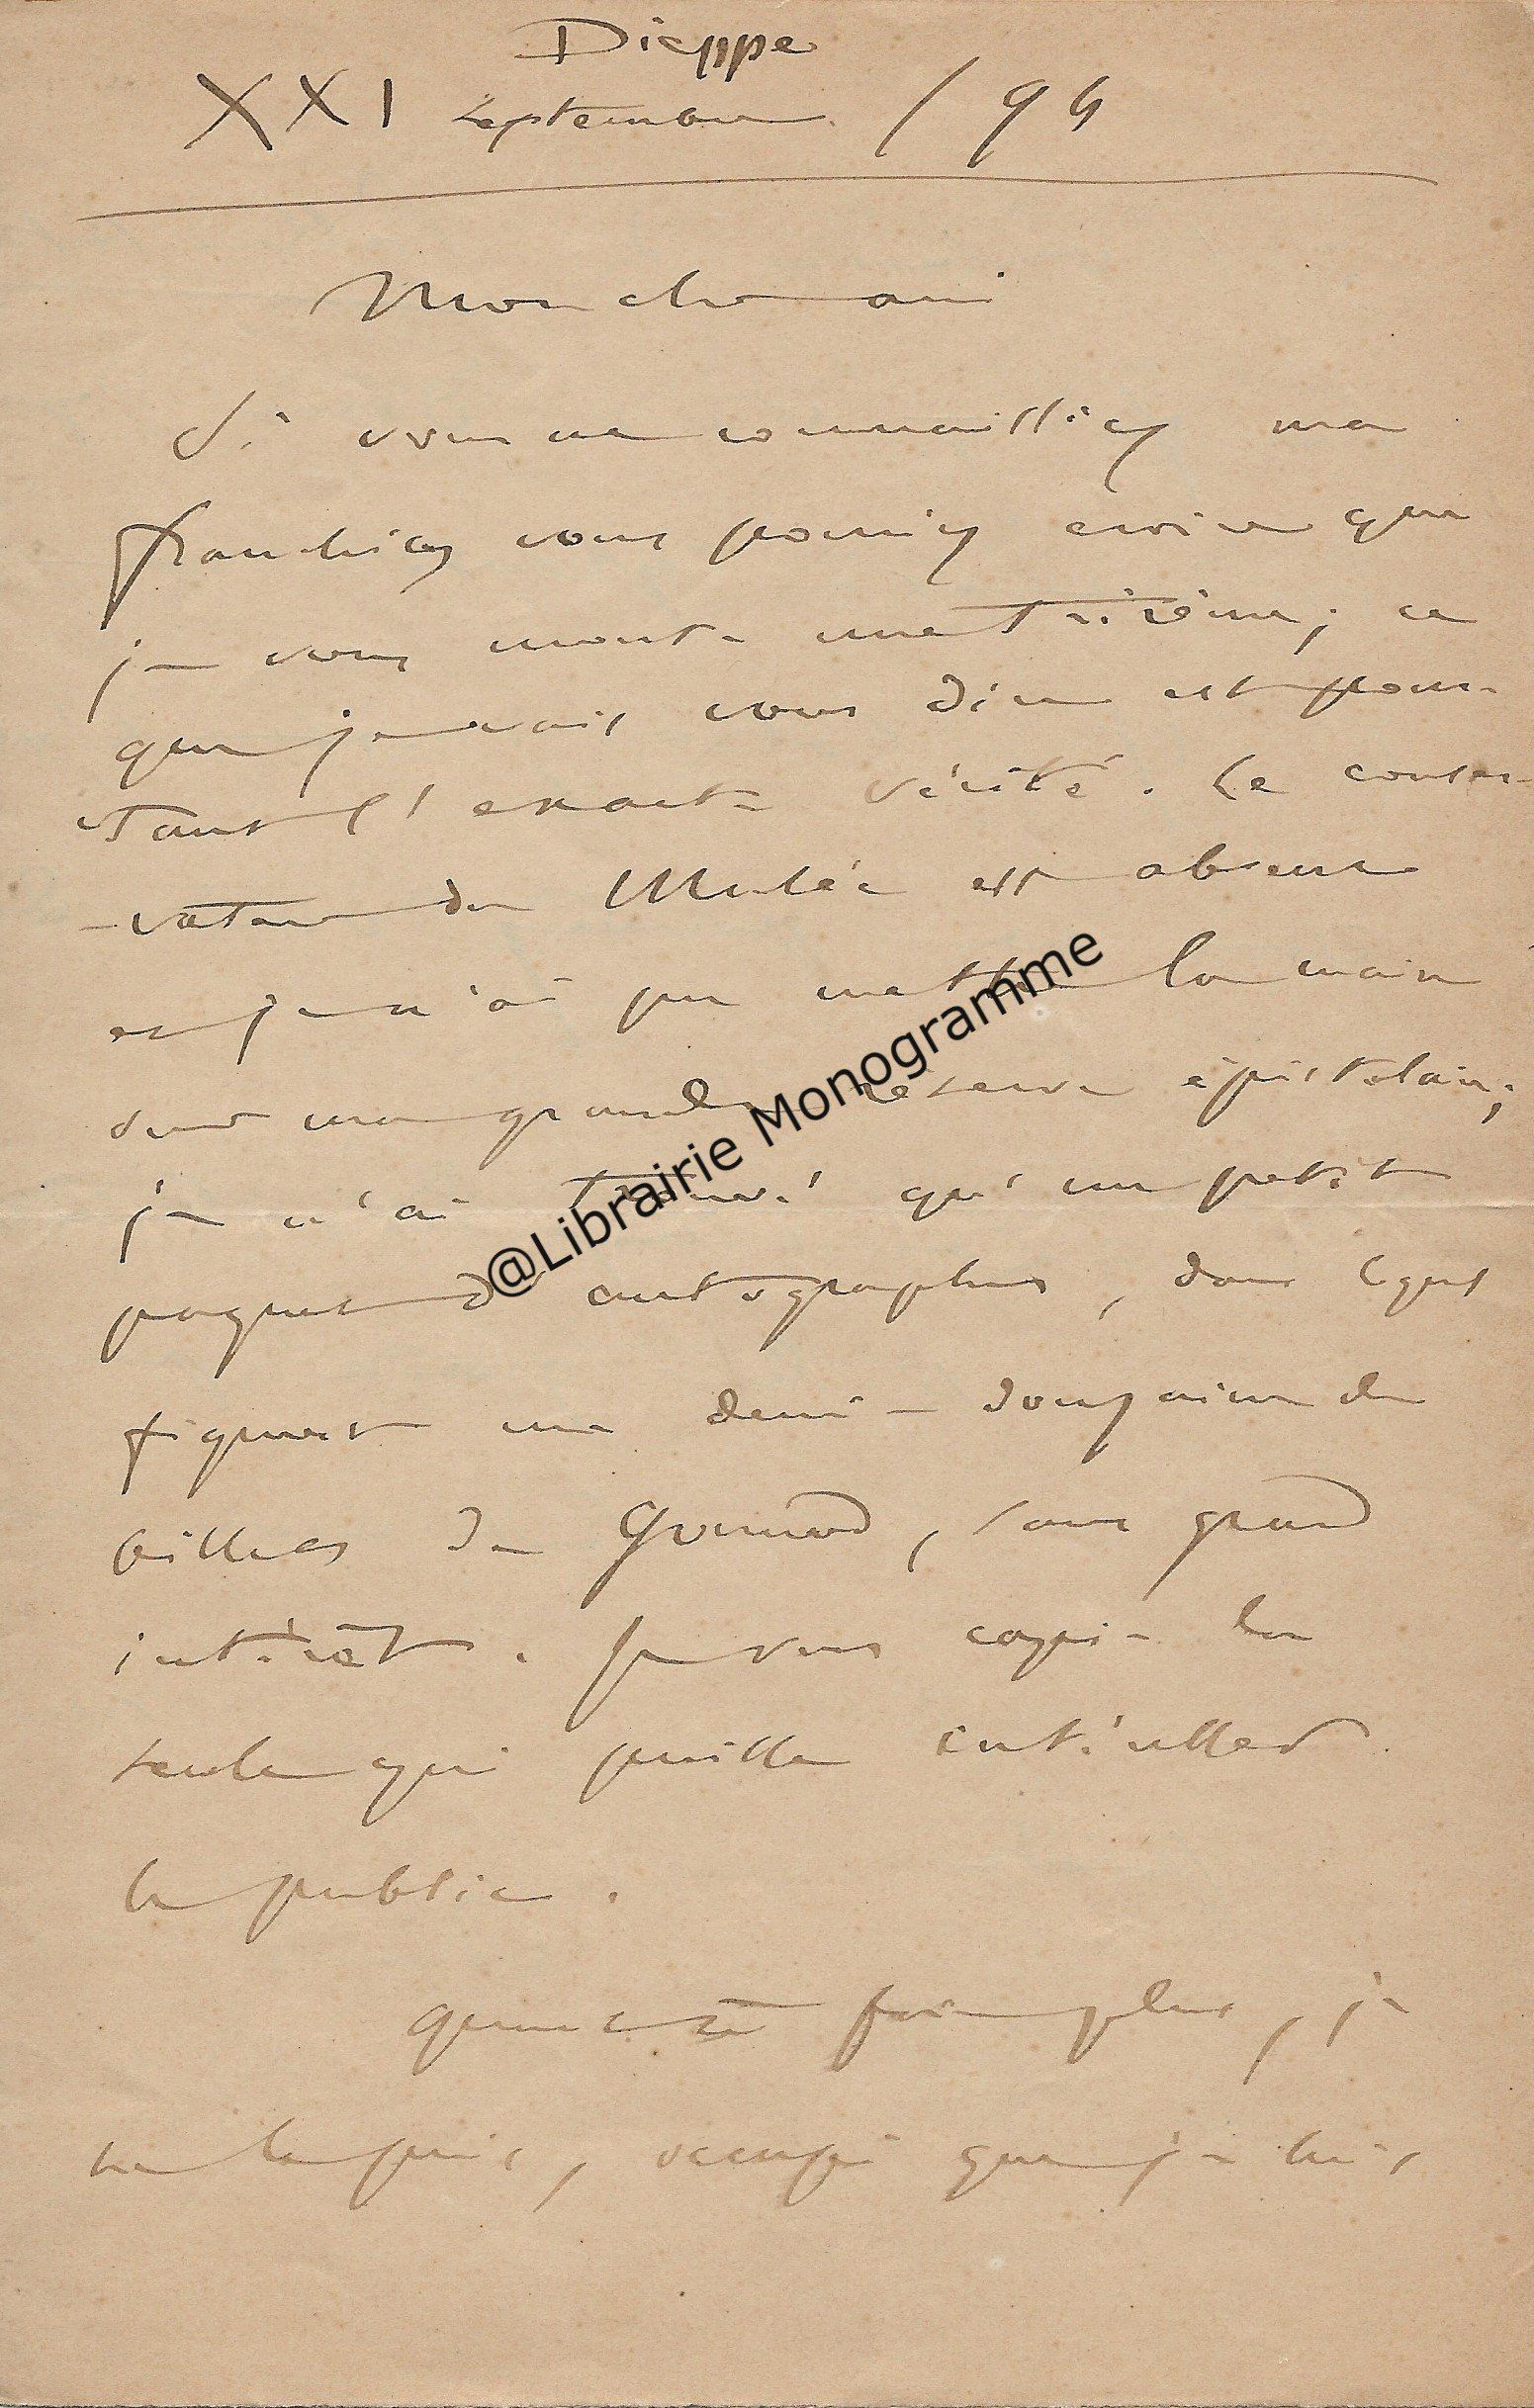 Dieppe
XXI Septembre / 94
Mon cher ami
Si vous ne connaissiez ma
franchise vous pourriez croire que
je vous monte une trirème ; ce
que je vais vous dire est pour-
tant l'exacte vérité. Le conser-
-vateur du Musée est absent
et je n'ai pu mettre la main
sur ma grande réserve épistolaire ;
je n'ai trouvé qu'un petit
paquet d'autographes, dans lequel
figurent une demi-douzaine de
billets de Gounod, sans grand
intérêt. Je vous copie la
seule qui puisse intéresser
le public.
fois plus, je
ne le puis, occupé que je suis
@Librairie Monogramme